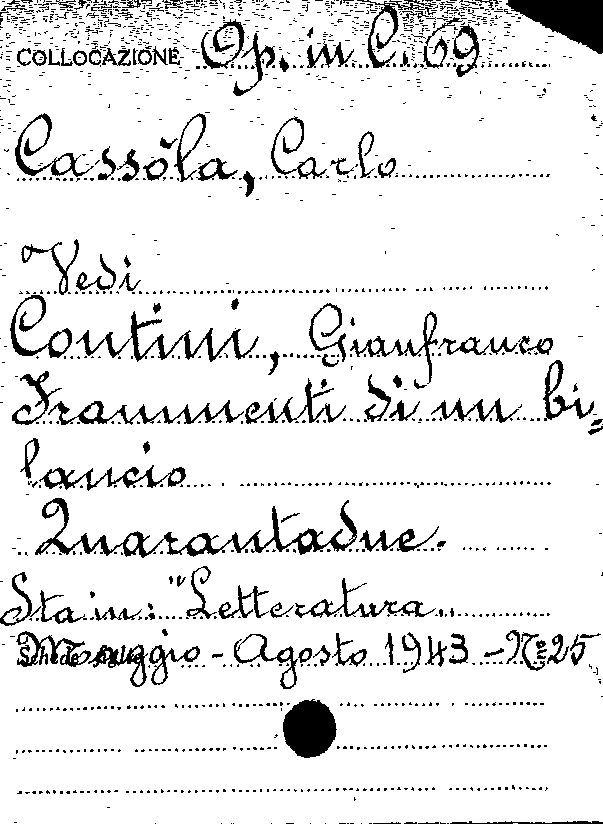 COLLOCAZIONE Op. in C. 69
Cassöla, Carlo
Vedi
Contini, Gianfranco
Frammenti di un bi=
lancio
Quarantadue.
Sta in: "Letteratura„
Maggio - Agosto 1943 - Nº 25